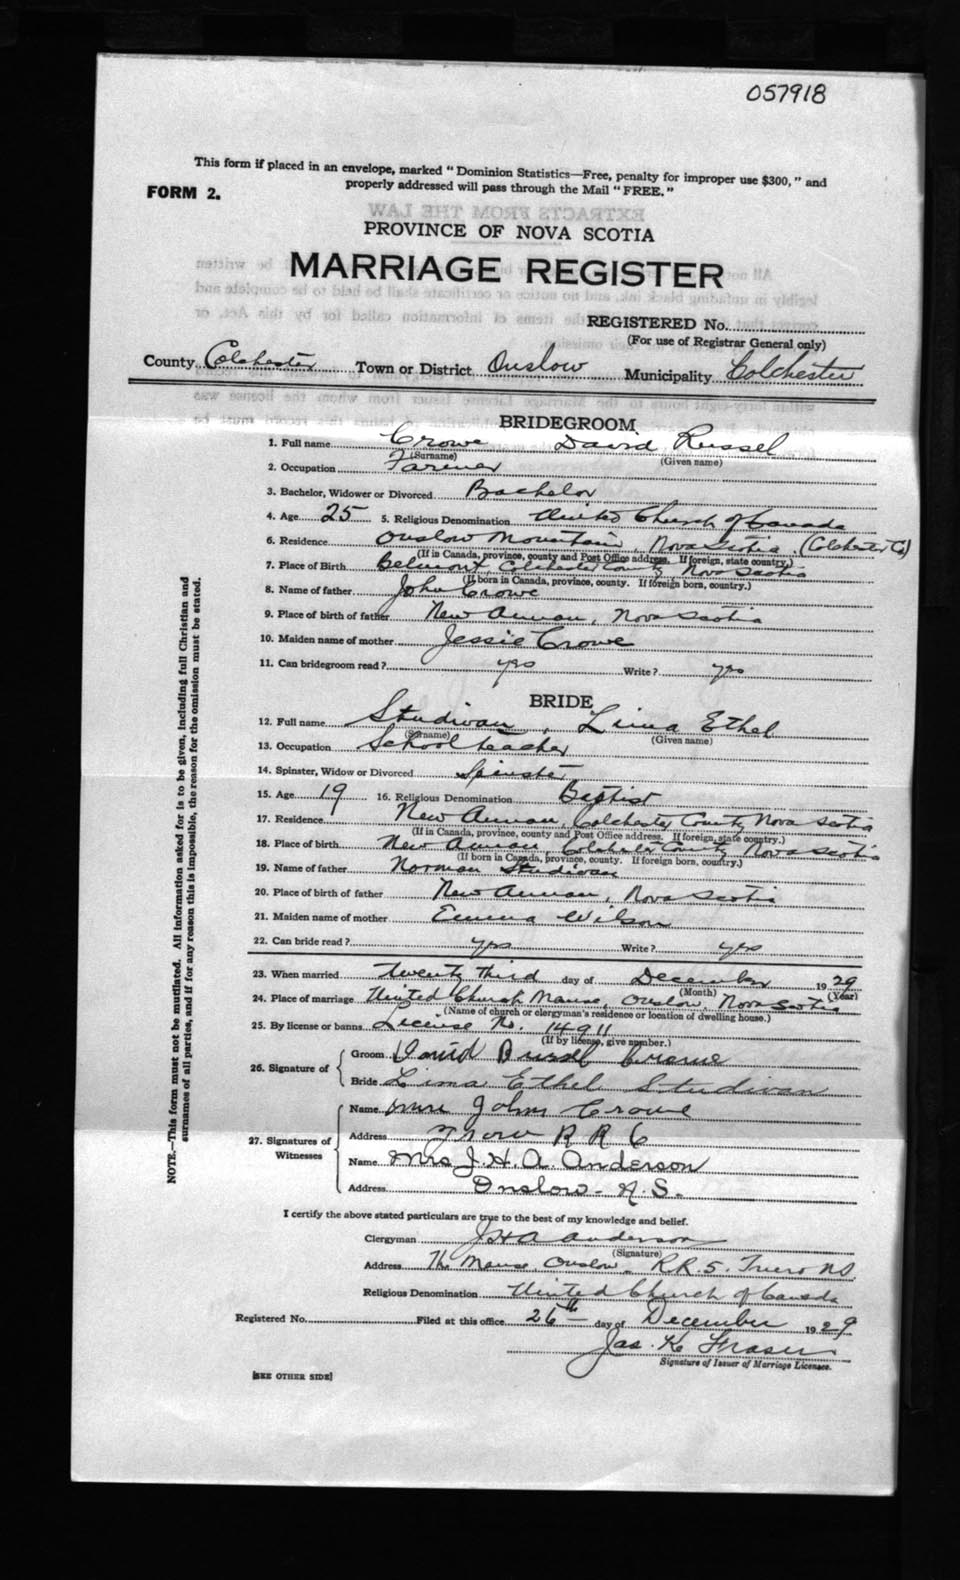 057918
This form if placed in an envelope, marked "Dominion Statistics—Free, penalty for improper use $300," and
properly addressed will pass through the Mail "FREE."
FORM 2.
EXTRACTS FROM THE LAW
PROVINCE OF NOVA SCOTIA
MARRIAGE REGISTER
REGISTERED No.
(For use of Registrar General only)
County Colchester Town or District Onslow Municipality Colchester
BRIDEGROOM
1. Full name Crowe David Russel
(Surname) (Given name)
2. Occupation Farmer
3. Bachelor, Widower or Divorced Bachelor
4. Age 25 5. Religious Denomination United Church of Canada
6. Residence Onslow Mountain, Nova Scotia. (Colchester Co)
(If in Canada, province, county and Post Office address. If foreign, state country.)
7. Place of Birth Belmont, Colchester County, Nova Scotia
(If born in Canada, province, county. If foreign born, country.)
8. Name of father John Crowe
9. Place of birth of father New Annan, Nova Scotia
10. Maiden name of mother Jessie Crowe
11. Can bridegroom read? yes Write? yes
BRIDE
12. Full name Studivan, Lima Ethel
(Surname) (Given name)
13. Occupation School teacher
14. Spinster, Widow or Divorced Spinster
15. Age 19 16. Religious Denomination Baptist
17. Residence New Annan, Colchester County Nova Scotia
(If in Canada, province, county and Post Office address. If foreign, state country.)
18. Place of birth New Annan, Colchester County Nova Scotia
(If born in Canada, province, county. If foreign born, country.)
19. Name of father Norman Studivan
20. Place of birth of father New Annan, Nova Scotia
21. Maiden name of mother Emma Wilson
22. Can bride read? yes Write? yes
23. When married twenty third day of December 1929
(Month) (Year)
24. Place of marriage United Church Manse, Onslow, Nova Scotia
(Name of church or clergyman's residence or location of dwelling house.)
25. By license or banns License No. 14911
(If by license, give number.)
26. Signature of
Groom David Russell Crowe
Bride Lima Ethel Studivan
27. Signatures of Witnesses
Name Mrs John Crowe
Address Truro R R 6
Name Mrs J. H. A. Anderson
Address Onslow - N. S.
I certify the above stated particulars are true to the best of my knowledge and belief.
Clergyman J H A Anderson
(Signature)
Address The Manse, Onslow. R.R.5. Truro NS.
Religious Denomination United Church of Canada
Registered No. Filed at this office 26th day of December 1929
Jas. K. Fraser
Signature of Issuer of Marriage Licenses.
[SEE OTHER SIDE]
NOTE.—This form must not be mutilated. All information asked for is to be given, including full Christian and
surnames of all parties, and if for any reason this is impossible, the reason for the omission must be stated.